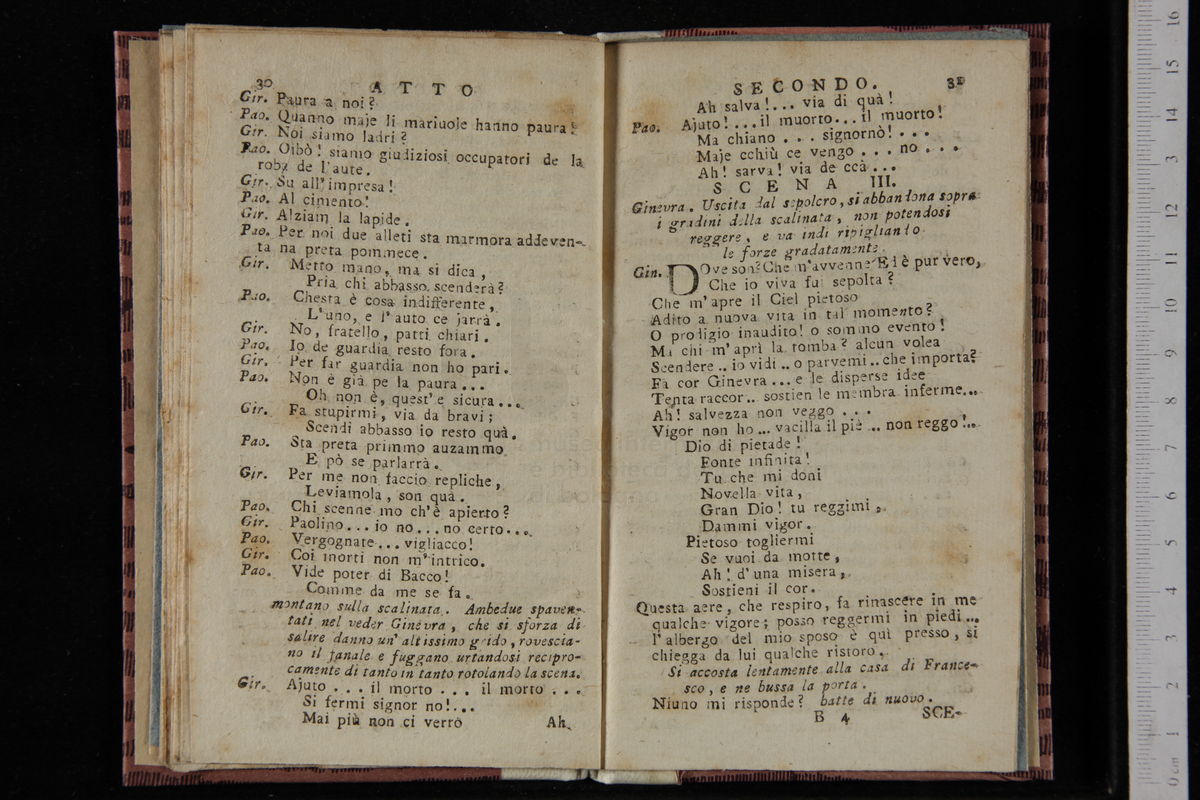 30 ATTO
Gir. Paura a noi?
Pao. Quanno maje li mariuole hanno paura?
Gir. Noi siamo ladri?
Pao. Oibò! siamo giudiziosi occupatori de la
roba de l'aute.
Gir. Su all'impresa!
Pao. Al cimento!
Gir. Alziam la lapide.
Pao. Per noi due alleti sta marmora addeven-
ta na preta pommece.
Gir. Metto mano, ma si dica,
Pria chi abbasso scenderà?
Pao. Chesta è cosa indifferente,
L'uno, e l'auto ce jarrà.
Gir. No, fratello, patti chiari.
Pao. Io de guardia resto fora.
Gir. Per far guardia non ho pari.
Pao. Non è già pe la paura...
Oh non è, quest'e sicura...
Gir. Fa stupirmi, via da bravi;
Scendi abbasso io resto quà.
Pao. Sta preta primmo auzammo
E pò se parlarrà.
Gir. Per me non faccio repliche,
Leviamola, son quà.
Pao. Chi scenne mo ch'è apierto?
Gir. Paolino... io no... no certo...
Pao. Vergognate... vigliacco!
Gir. Coi morti non m'intrico.
Pao. Vide poter di Bacco!
Comme da me se fa.
montano sulla scalinata. Ambedue spaven-
tati nel veder Ginevra, che si sforza di
salire danno un' altissimo grido, rovescia-
no il fanale e fuggano urtandosi recipro-
camente di tanto in tanto rotolando la scena.
Gir. Ajuto... il morto... il morto...
Si fermi signor no!...
Mai più non ci verrò
Ah
SECONDO. 31
Ah salva!... via di quà!
Pao. Ajuto!... il muorto... il muorto!
Ma chiano... signornò!...
Maje cchiù ce vengo... no...
Ah! sarva! via de ccà...
SCENA III.
Ginevra. Uscita dal sepolcro, si abbandona sopra
i gradini della scalinata, non potendosi
reggere, e va indi ripigliando
le forze gradatamente.
Gin. DOve son? Che m'avvenne? Ed è pur vero,
Che io viva fui sepolta?
Che m'apre il Ciel pietoso
Adito a nuova vita in tal momento?
O prodigio inaudito! o sommo evento!
Ma chi m'aprì la tomba? alcun volea
Scendere.. io vidi.. o parvemi.. che importa?
Fa cor Ginevra... e le disperse idee
Tenta raccor.. sostien le membra inferme...
Ah! salvezza non veggo...
Vigor non ho... vacilla il piè... non reggo!...
Dio di pietade!
Fonte infinita!
Tu che mi doni
Novella vita,
Gran Dio! tu reggimi,
Dammi vigor.
Pietoso togliermi
Se vuoi da motte,
Ah! d'una misera,
Sostieni il cor.
Questa aere, che respiro, fa rinascere in me
qualche vigore; posso reggermi in piedi...
l'albergo del mio sposo è quì presso, si
chiegga da lui qualche ristoro.
Si accosta lentamente alla casa di France-
sco, e ne bussa la porta.
Niuno mi risponde? batte di nuovo.
B 4 SCE-
0 cm 1 2 3 4 5 6 7 8 9 10 11 12 13 14 15 16